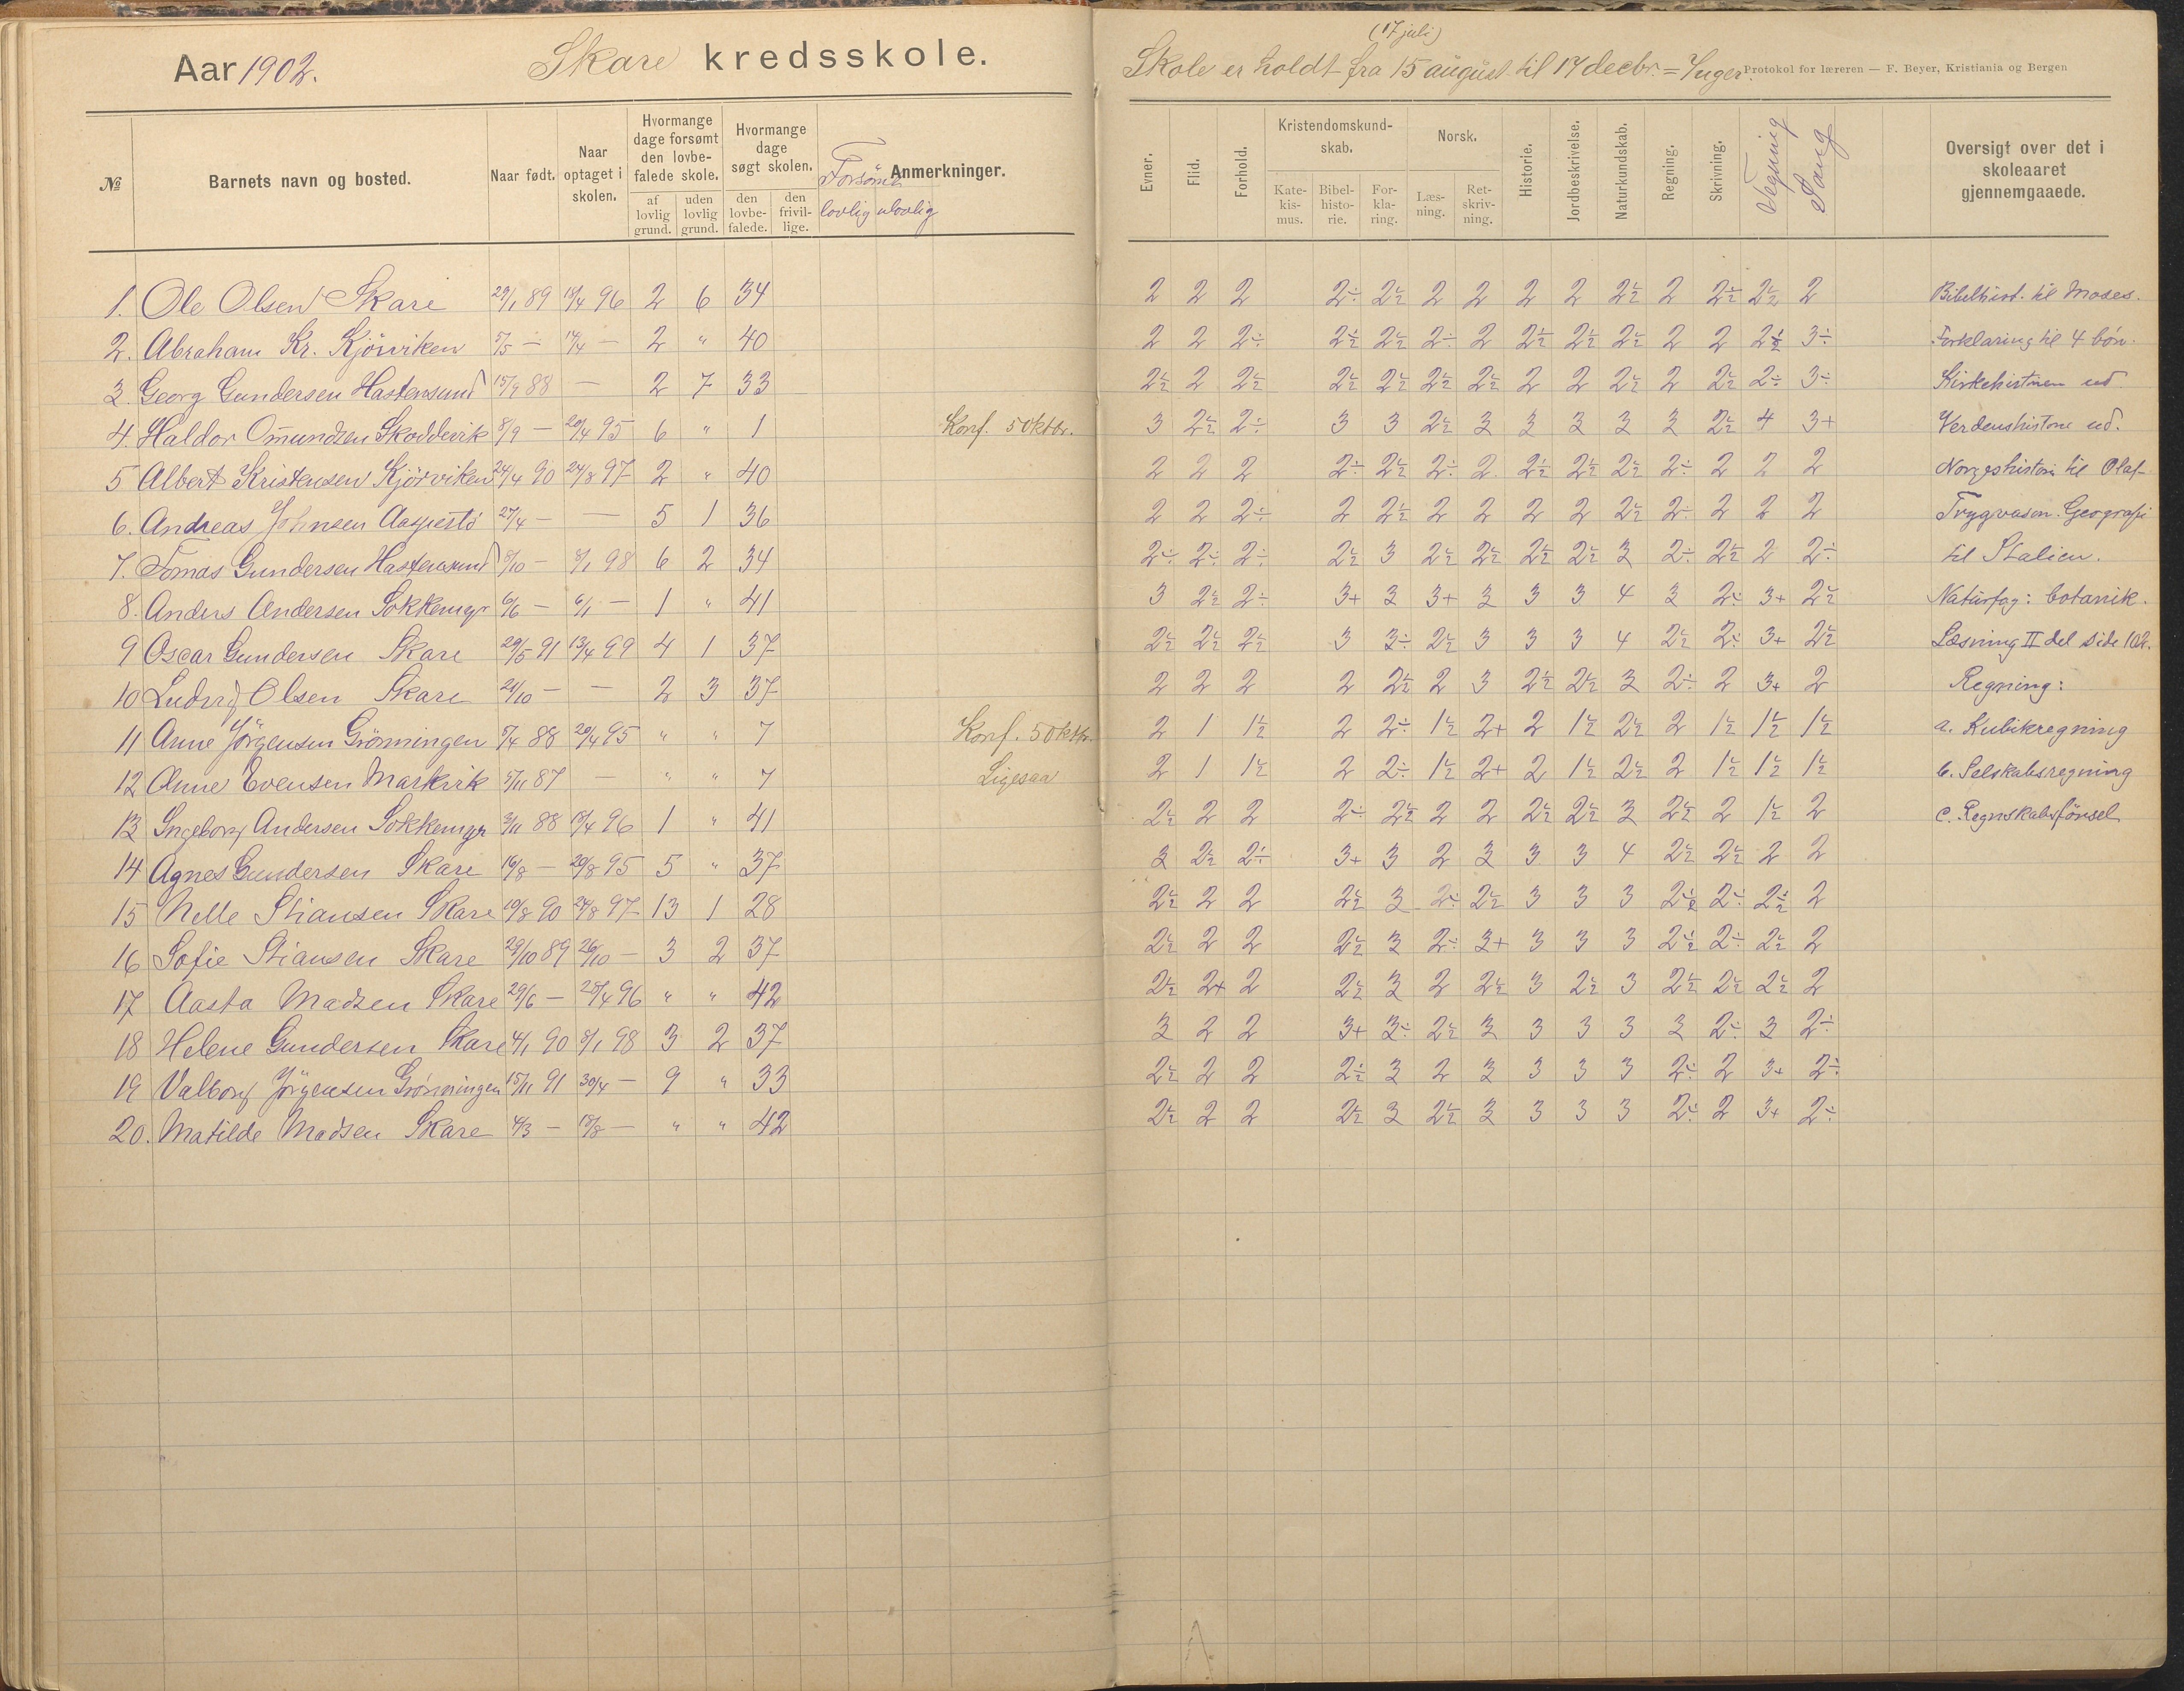 Aar 1902. Skare kredsskole.
№ Barnets navn og bosted. Naar født. Naar optaget i skolen. Hvormange dage forsømt den lovbefalede skole. Hvormange dage søgt skolen. Forsømt Anmerkninger.
af lovlig grund. uden lovlig grund. den lovbefalede. den frivillige. lovlig ulovlig
1. Ole Olsen Skare 29/1 89 18/4 96 2 6 34
2. Abraham Kr. Kjörviken 5/5 — 14/4 — 2 " 40
3. Georg Gundersen Hastensund 15/9 88 — 2 7 33
4. Haldor Omundsen Skoddevik 8/9 — 20/4 95 6 " 1 Konf. 5 oktbr.
5 Albert Kristensen Kjörviken 24/4 90 24/8 97 2 " 40
6. Andreas Johnsen 27/4 — — 5 1 36
7. Tomas Gundersen Hastensund 8/10 — 8/1 98 6 2 34
8. Anders Andersen 6/6 — 6/1 — 1 " 41
9 Oscar Gundersen Skare 29/5 91 13/4 99 4 1 37
10 Ludvig Olsen Skare 24/10 — — 2 3 37
11 Anne Jörgensen Grönningen 5/4 88 20/4 95 " " 7 Konf. 5 oktbr.
12 Anne Evensen Markvik 5/11 87 — " " 7 Ligesaa
13 Ingeborg Andersen 3/11 88 18/4 96 1 " 41
14 Agnes Gundersen Skare 16/8 — 20/8 95 5 " 37
15 Nelle Stiansen Skare 19/8 90 24/8 97 13 1 28
16 Sofie Stiansen Skare 29/10 89 26/10 — 3 2 37
17 Aasta Madsen Skare 29/6 — 25/4 96 " " 42
18 Helene Gundersen Skare 4/1 90 8/1 98 3 2 37
19 Valborg Jörgensen Grönningen 15/11 91 30/4 — 9 " 33
20. Matilde Madsen Skare 4/3 — 18/8 — " " 42
(17 juli)
Skole er holdt fra 15 august til 17 decbr. = 7 uger.
Protokol for læreren — F. Beyer, Kristiania og Bergen
Evner. Flid. Forhold. Kristendomskundskab. Norsk. Historie. Jordbeskrivelse. Naturkundskab. Regning. Skrivning. Tegning Sang Oversigt over det i skoleaaret gjennemgaaede.
Katekismus. Bibelhistorie. Forklaring. Læsning. Retskrivning.
2 2 2 2÷ 2½ 2 2 2 2 2½ 2 2½ 2½ 2 Bibelhist. til Moses.
2 2 2÷ 2½ 2½ 2÷ 2 2½ 2½ 2½ 2 2 2½ 3÷ Forklaring til 4 bøn.
2½ 2 2½ 2½ 2½ 2½ 2½ 2 2 2½ 2 2½ 2÷ 3÷ Kirkehistorien ud.
3 2½ 2÷ 3 3 2½ 3 3 3 3 3 2½ 4 3+ Verdenshistorie ud.
2 2 2 2÷ 2½ 2÷ 2 2½ 2½ 2½ 2÷ 2 2 2 Norgeshistorie til Olaf
2 2 2÷ 2 2½ 2 2 2 2 2½ 2÷ 2 2 2 Trygvason. Geografi
2÷ 2÷ 2÷ 2½ 3 2½ 2½ 2½ 2½ 3 2÷ 2½ 2 2÷ til Italien.
3 2½ 2÷ 3+ 3 3+ 3 3 3 4 3 2÷ 3+ 2½ Naturfag: botanik.
2½ 2½ 2½ 3 3÷ 2½ 3 3 3 4 2½ 2÷ 3+ 2½ Læsning II del side 102.
2 2 2 2 2½ 2 3 2½ 2½ 3 2÷ 2 3+ 2 Regning:
2 1 1½ 2 2÷ 1½ 2+ 2 1½ 2½ 2 1½ 1½ 1½ a. Kubikregning
2 1 1½ 2 2÷ 1½ 2+ 2 1½ 2½ 2 1½ 1½ 1½ b. Selskabsregning
2½ 2 2 2÷ 2½ 2 2 2½ 2½ 3 2½ 2 1½ 2 c. Regnskabsförsel
3 2½ 2÷ 3+ 3 2 3 3 3 4 2½ 2½ 2 2
2½ 2 2 2½ 3 2÷ 2½ 3 3 3 2½ 2÷ 2½ 2
2½ 2 2 2½ 3 2÷ 3+ 3 3 3 2½ 2÷ 2½ 2
2½ 2+ 2 2½ 3 2 2½ 3 2½ 3 2½ 2½ 2½ 2
3 2 2 3+ 3÷ 2½ 3 3 3 3 3 2÷ 3 2÷
2½ 2 2 2½ 3 2 3 3 3 3 2÷ 2 3+ 2÷
2½ 2 2 2½ 3 2½ 3 3 3 3 2÷ 2 3+ 2÷